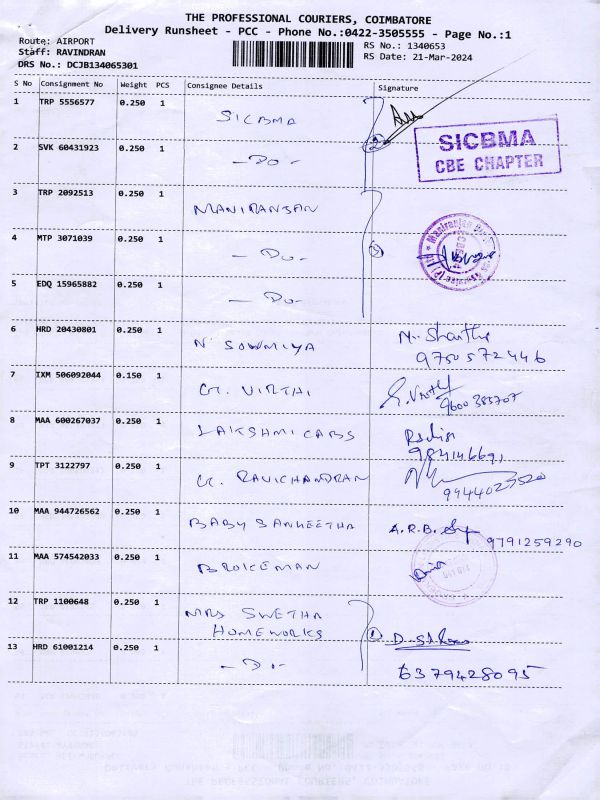 THE PROFESSIONAL COURIERS, COIMBATORE
Delivery Runsheet - PCC - Phone No.:0422-3505555 - Page No.:1
Route: AIRPORT
Staff: RAVINDRAN
DRS No.: DCJB134065301
RS No.: 1340653
RS Date: 21-Mar-2024
S No Consignment No Weight PCS Consignee Details Signature
1 TRP 5556577 0.250 1 SICBMA
SICBMA
CBE CHAPTER
2 SVK 60431923 0.250 1 -Do- 2
3 TRP 2092513 0.250 1 MANIRANJAN
4 MTP 3071039 0.250 1 -Do- 3
5 EDQ 15965882 0.250 1 -Do-
6 HRD 20430801 0.250 1 N SOWMIYA
9750572446
7 IXM 506092044 0.150 1 G. VIRTHI
9600383707
8 MAA 600267037 0.250 1 LAKSHMI CABS
9 TPT 3122797 0.250 1 G. RAVICHANDRAN
10 MAA 944726562 0.250 1 BABY SANGEETHA A.R.B.
9791259290
11 MAA 574542033 0.250 1 BROICEMAN
12 TRP 1100648 0.250 1 MRS SWETHA
HOMEWORKS
13 HRD 61001214 0.250 1 -Do-
6379428095